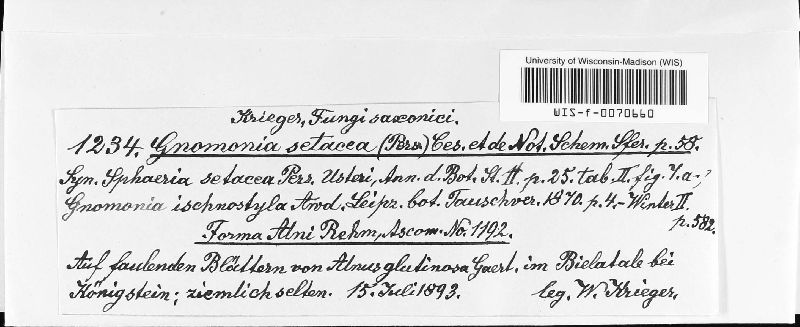 University of Wisconsin-Madison (WIS)
WIS-f-0070660
Krieger, Fungi saxonici.
1234. Gnomonia setacea (Pers.) Ces. et de Not. Schem. Sfer. p. 58.
Syn. Sphaeria setacea Pers. Usteri, Ann. d. Bot. St. II. p. 25. tab. II. fig. 7. a.,
Gnomonia ischnostyla Awd. Leipz. bot. Tauschver. 1870. p. 4. - Winter II.
p. 582.
Forma Alni Rehm, Ascom. No. 1192.
Auf faulenden Blättern von Alnus glutinosa Gaert. im Bielatale bei
Königstein; ziemlich selten. 15. Juli 1893. leg. W. Krieger.